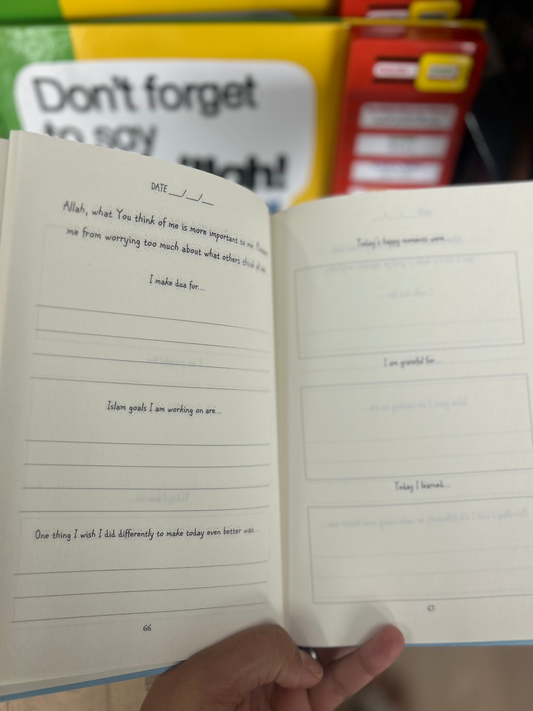 Don't forget
to say
DATE __/__/__
Allah, what You think of me is more important to me.
me from worrying too much about what others think of
I make dua for...
Islam goals I am working on are...
One thing I wish I did differently to make today even better was...
66
Today's happy moments were...
I am grateful for...
Today I learned...
67